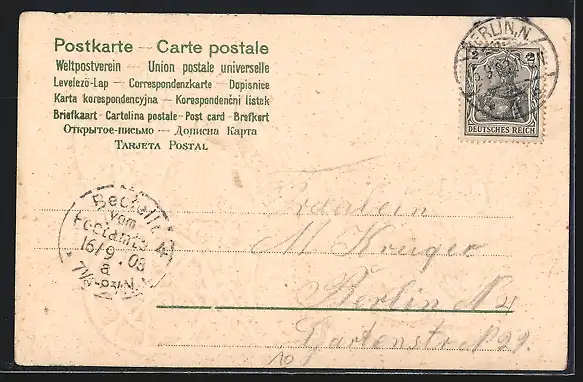 Postkarte — Carte postale
Weltpostverein — Union postale universelle
Levelező-Lap — Correspondenzkarte — Dopisnice
Karta korespondencyjna — Korespondenční lístek
Briefkaart - Cartolina postale - Post card - Brefkort
Открытое-письмо — Дописна Карта
Tarjeta Postal
BERLIN, N.
2 2
DEUTSCHES REICH
Bestellt
Vom
Postamte 4
16/9.03
a
7½-
Fräulein
M Krüger
Berlin N 4
Gartenstr N 29.
10